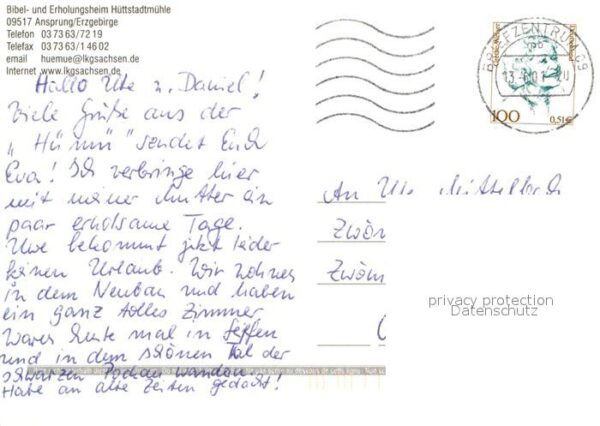 Bibel- und Erholungsheim Hüttstadtmühle
09517 Ansprung/Erzgebirge
Telefon 03 73 63/72 19
Telefax 03 73 63/1 46 02
email huemue@lkgsachsen.de
Internet www.lkgsachsen.de
BRIEFZENTRUM 09
100 0,51€
Hallo Ute u. Daniel!
Viele Grüße aus der
„Hü mü" sendet Euch
Eva! Ich verbringe hier
mit meiner Mutter ein
paar erholsame Tage.
Uwe bekommt jetzt leider
keinen Urlaub. Wir wohnen
in dem Neubau und haben
ein ganz tolles Zimmer.
Waren heute mal in Seiffen
und in dem schönen Tal der
schwarzen Pockau wandern.
Habe an alte Zeiten gedacht!
An Ute
Zwön
Zwöm
privacy protection
Datenschutz